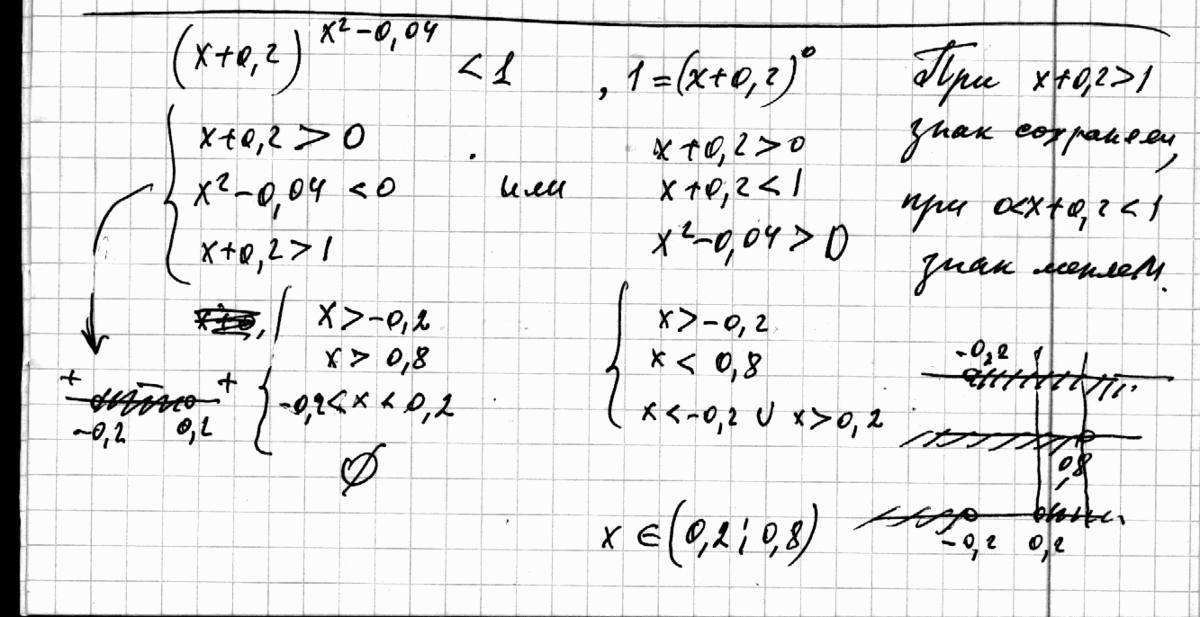 (x+0,2)^{x²-0,04} < 1 , 1=(x+0,2)⁰ При x+0,2>1
знак сохраняем,
при 0<x+0,2<1
знак меняем.
x+0,2>0
x²-0,04<0
x+0,2>1
или
x+0,2>0
x+0,2<1
x²-0,04>0
+ − +
-0,2 0,2
x>-0,2
x>0,8
-0,2<x<0,2
∅
x>-0,2
x<0,8
x<-0,2 ∪ x>0,2
-0,2
0,8
-0,2 0,2
x∈(0,2;0,8)